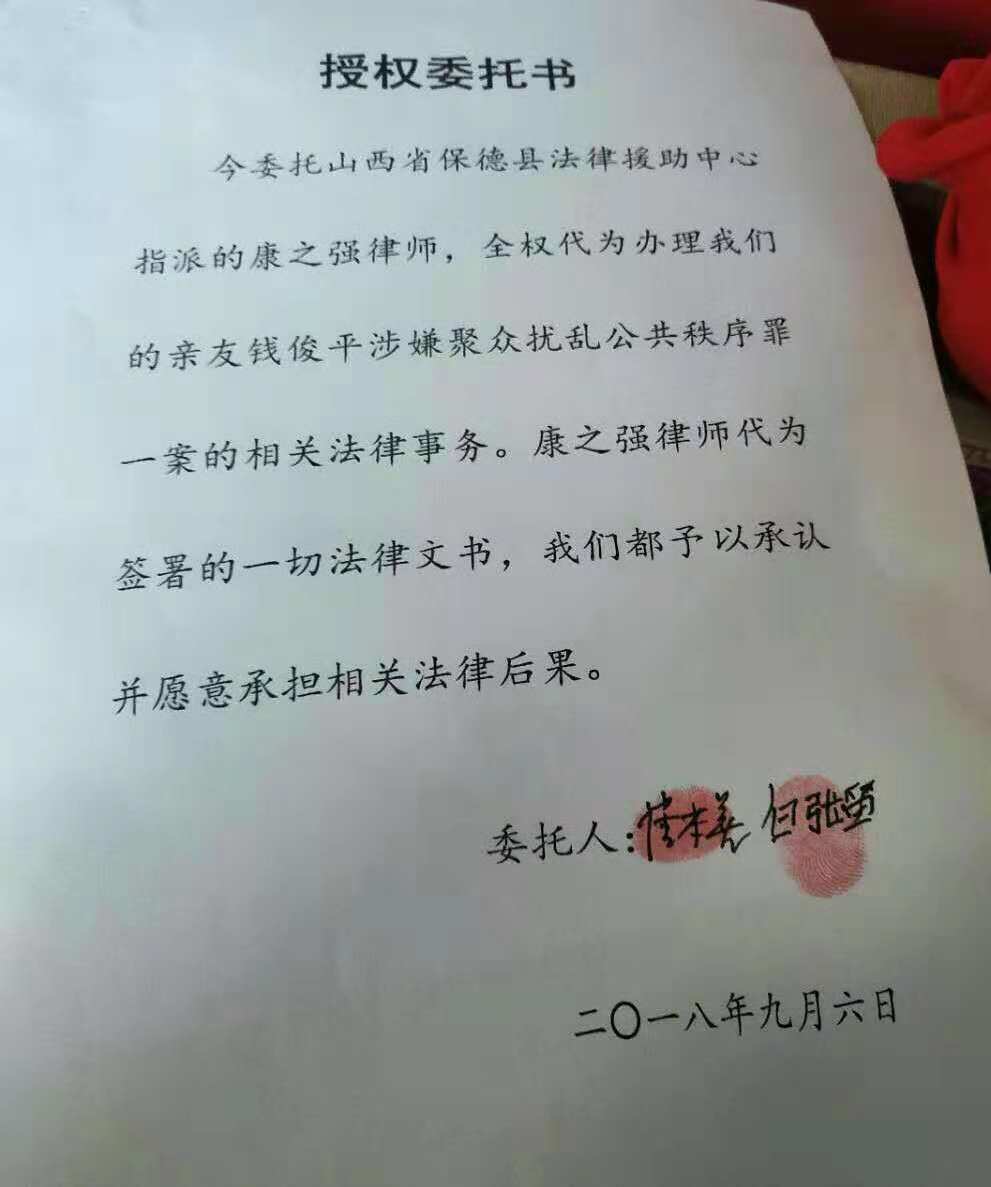 授权委托书
今委托山西省保德县法律援助中心
指派的康之强律师，全权代为办理我们
的亲友钱俊平涉嫌聚众扰乱公共秩序罪
一案的相关法律事务。康之强律师代为
签署的一切法律文书，我们都予以承认
并愿意承担相关法律后果。
委托人:
二〇一八年九月六日